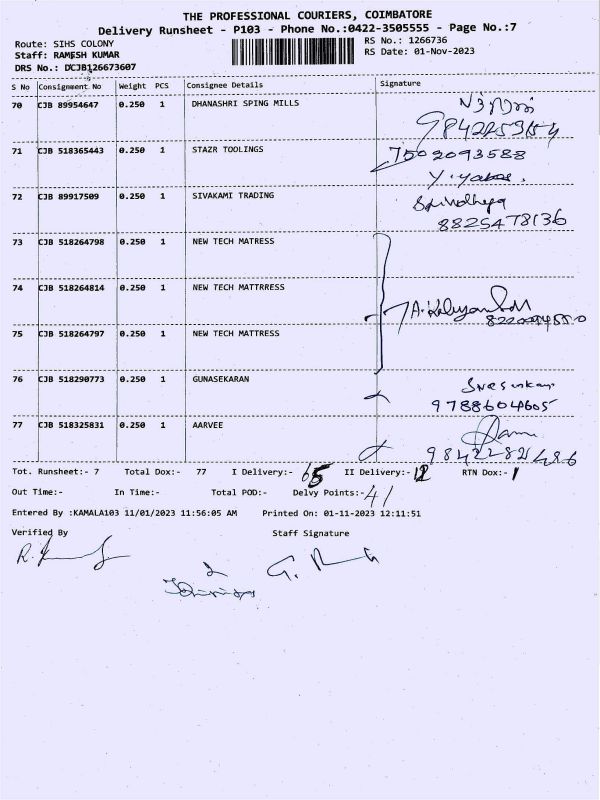 THE PROFESSIONAL COURIERS, COIMBATORE
Delivery Runsheet - P103 - Phone No.:0422-3505555 - Page No.:7
Route: SIHS COLONY RS No.: 1266736
Staff: RAMESH KUMAR RS Date: 01-Nov-2023
DRS No.: DCJB126673607
S No Consignment No Weight PCS Consignee Details Signature
70 CJB 89954647 0.250 1 DHANASHRI SPING MILLS
71 CJB 518365443 0.250 1 STAZR TOOLINGS 7502093588
72 CJB 89917509 0.250 1 SIVAKAMI TRADING
8825478136
73 CJB 518264798 0.250 1 NEW TECH MATRESS
74 CJB 518264814 0.250 1 NEW TECH MATTRRESS
75 CJB 518264797 0.250 1 NEW TECH MATTRESS
76 CJB 518290773 0.250 1 GUNASEKARAN
9788604605
77 CJB 518325831 0.250 1 AARVEE
9842282486
Tot. Runsheet:- 7 Total Dox:- 77 I Delivery:- 65 II Delivery:- 12 RTN Dox:- 1
Out Time:- In Time:- Total POD:- Delvy Points:- 41
Entered By :KAMALA103 11/01/2023 11:56:05 AM Printed On: 01-11-2023 12:11:51
Verified By Staff Signature